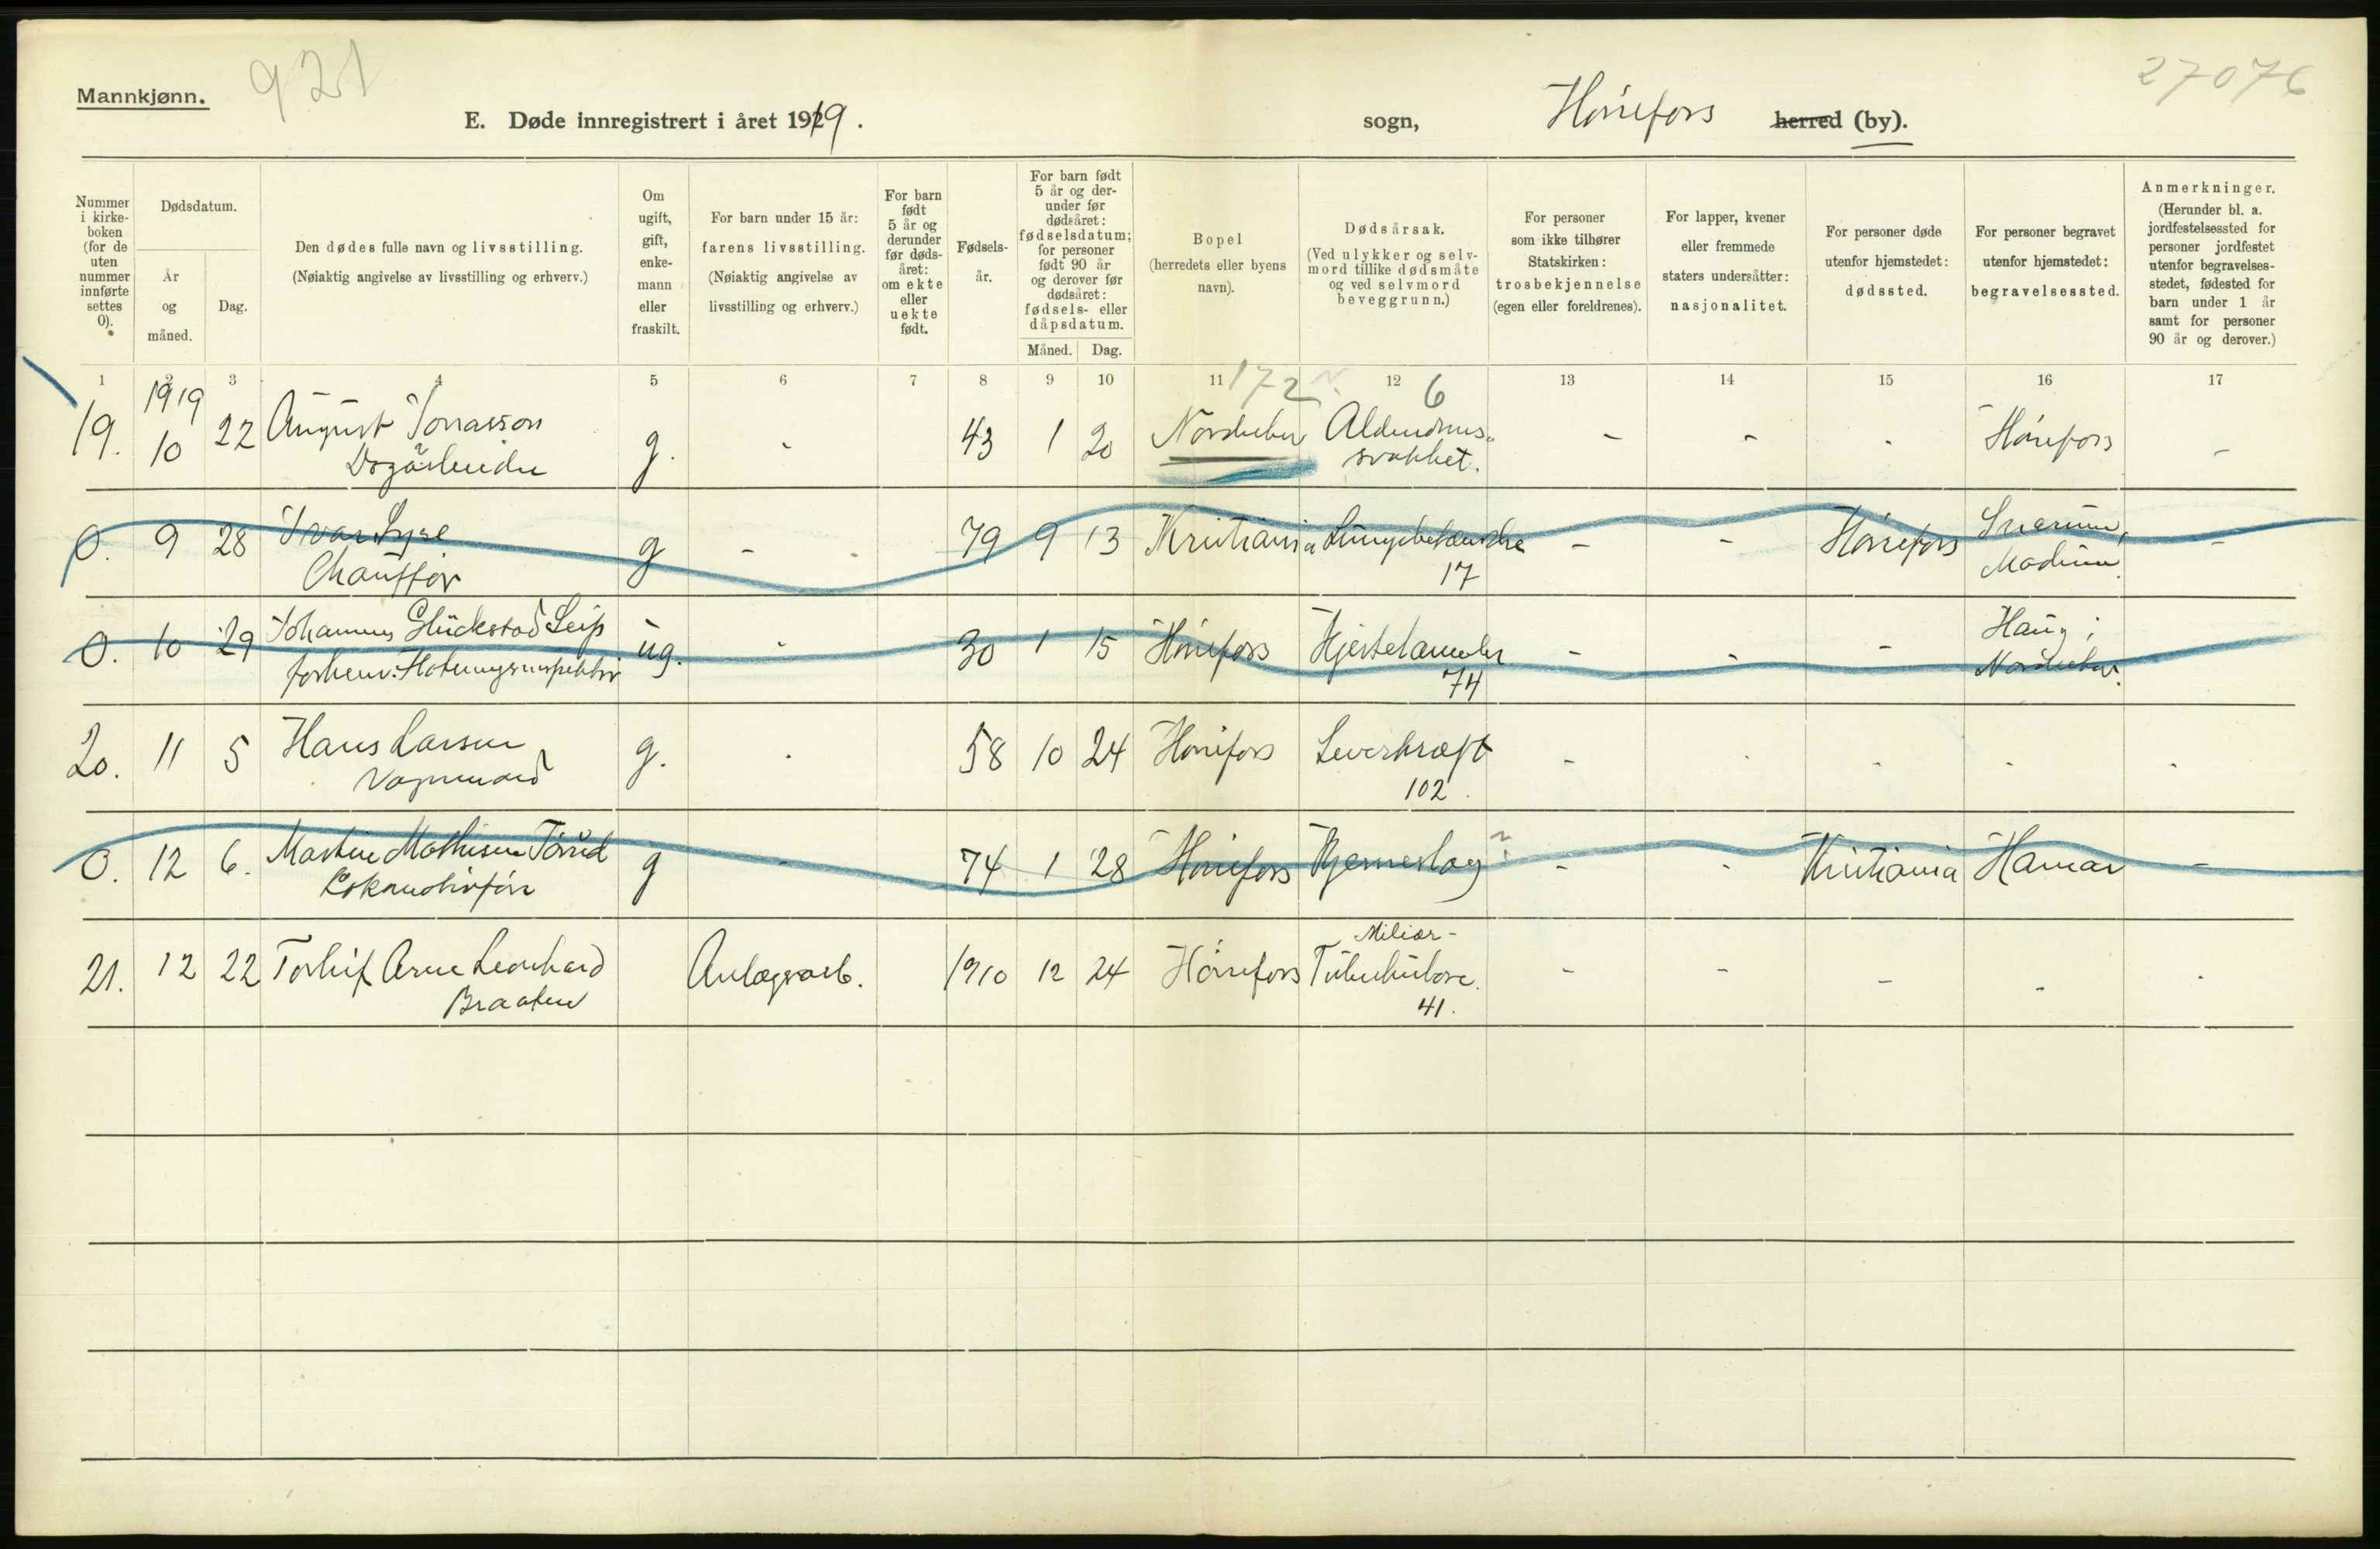 921
27076
Mannkjønn.
E. Døde innregistrert i året 1919.
sogn, Hønefoss herred (by).
Nummer i kirke-boken (for de uten nummer innførte settes 0).
Dødsdatum.
År og måned.
Dag.
Den dødes fulle navn og livsstilling.
(Nøiaktig angivelse av livsstilling og erhverv.)
Om ugift, gift, enke-mann eller fraskilt.
For barn under 15 år:
farens livsstilling.
(Nøiaktig angivelse av livsstilling og erhverv.)
For barn født 5 år og derunder før døds-året: om ekte eller uekte født.
Fødsels-år.
For barn født 5 år og der-under før dødsåret: fødselsdatum; for personer født 90 år og derover før dødsåret: fødsels- eller dåpsdatum.
Måned. Dag.
Bopel
(herredets eller byens navn).
Dødsårsak.
(Ved ulykker og selv-mord tillike dødsmåte og ved selvmord beveggrunn.)
For personer som ikke tilhører Statskirken: trosbekjennelse (egen eller foreldrenes).
For lapper, kvener eller fremmede staters undersåtter: nasjonalitet.
For personer døde utenfor hjemstedet: dødssted.
For personer begravet utenfor hjemstedet: begravelsessted.
Anmerkninger.
(Herunder bl. a. jordfestelsessted for personer jordfestet utenfor begravelses-stedet, fødested for barn under 1 år samt for personer 90 år og derover.)
1 2 3 4 5 6 7 8 9 10 11 12 13 14 15 16 17
1919 172 6
19. 10 22 August Jonasson g. - 43 1 20 Norderhov Alderdoms- - - - Hønefoss -
svakhet.
0. 9 28 Ivar Lyse g - 79 9 13 Kristiania Lungebetændelse - - Hønefoss Snarum, -
Chauffør 17 Modum.
0. 10 29 Johannes Glückstad Leip ug. - 30 1 15 Hønefoss Hjertelammelse - - - Haug i
forhenv. Flotningsinspektør 74 Norderhov.
20. 11 5 Hans Larsen g. - 58 10 24 Hønefoss Leverkræft - - - - -
Vognmand 102.
0. 12 6. Martin Mathisen g - 74 1 28 Hønefoss Hjerneslag ? - - Kristiania Hamar -
Lokomotivfører
21. 12 22 Torleif Arne Leonhard Anlægsarb. 1910 12 24 Hønefoss Miliær- - - - - -
Braaten Tuberkulose.
41.